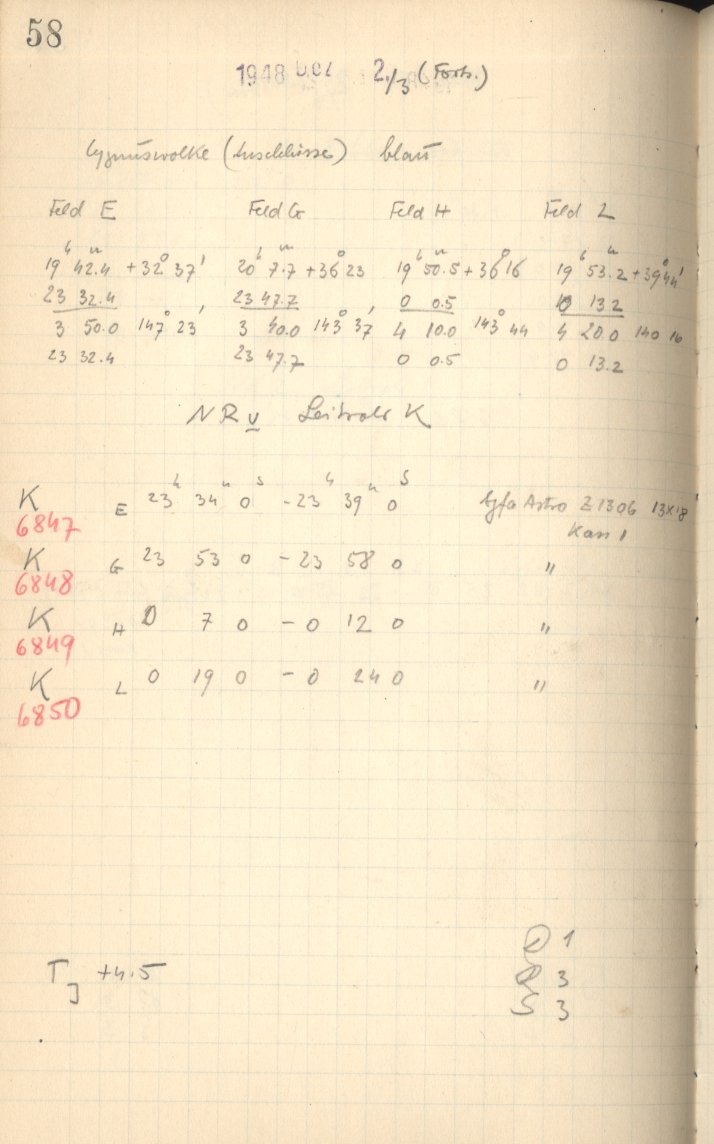 58
1948 Dez 2./3 (Forts.)
Cygnuswolke (Anschlüsse) blau
Feld E Feld G Feld H Feld L
19ʰ 42.4ᵐ +32° 37' 20ʰ 7.7ᵐ +36° 23 19ʰ 50.5ᵐ +36° 16 19ʰ 53.2ᵐ +39° 44'
23 32.4 23 47.7 0 0.5 0 13.2
3 50.0 147° 23' 3 40.0 143° 37' 4 10.0 143° 44 4 20.0 140 16
23 32.4 23 47.7 0 0.5 0 13.2
NR v Leitrohr K
K E 23ʰ 34ᵐ 0ˢ - 23ʰ 39ᵐ 0ˢ Agfa Astro Z 1306 13×18
6847 Kass 1
K G 23 53 0 - 23 58 0 "
6848
K H 0 7 0 - 0 12 0 "
6849
K L 0 19 0 - 0 24 0 "
6850
D 1
T +4.5 R 3
J S 3